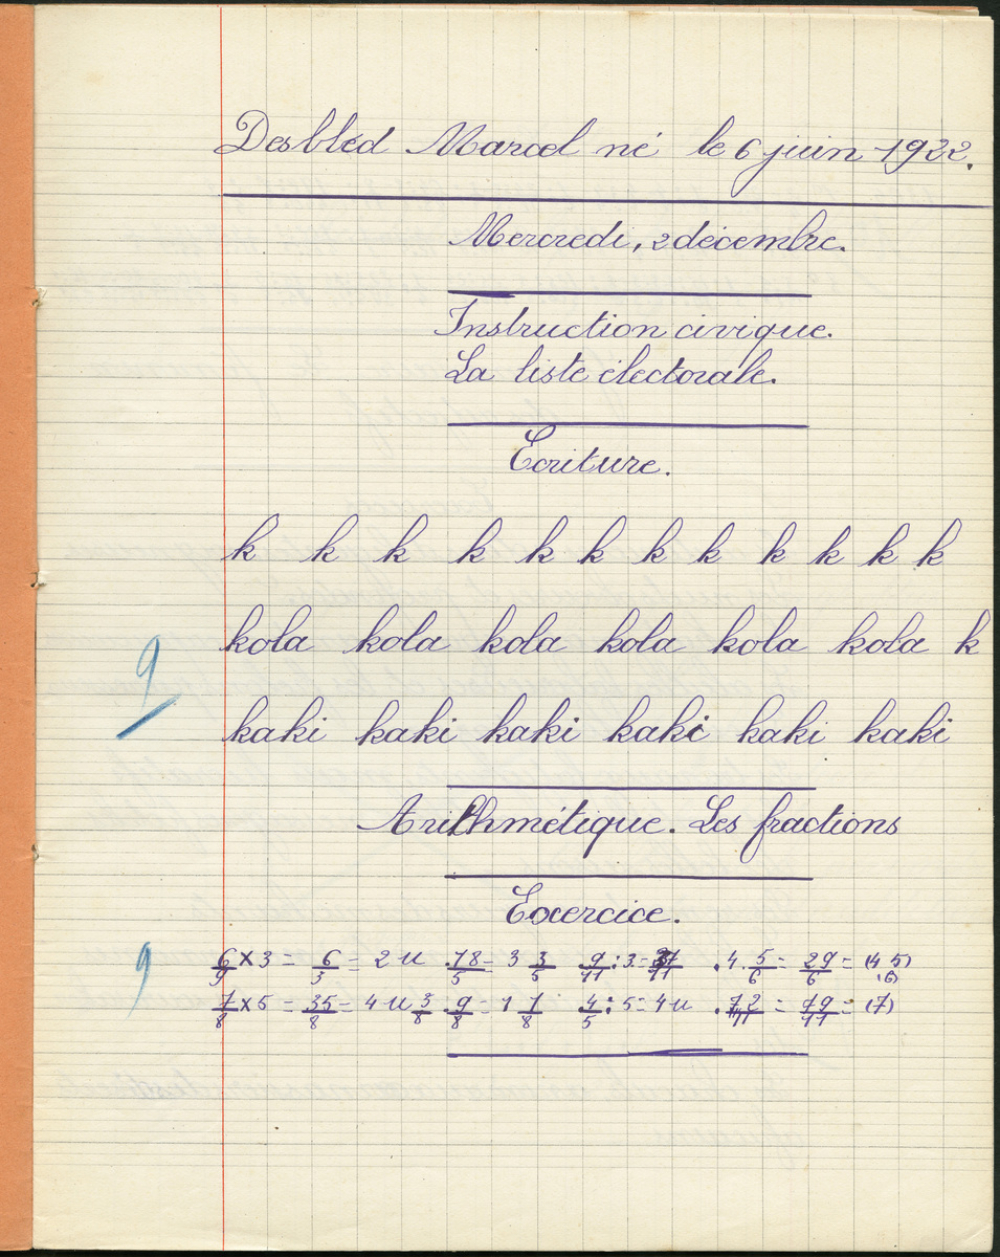 Desbled Marcel né le 6 juin 1922.
Mercredi, 2 décembre.
Instruction civique.
La liste électorale.
Ecriture.
k k k k k k k k k k k k
kola kola kola kola kola kola k
9
kaki kaki kaki kaki kaki kaki
Arithmétique. Les fractions
Exercice.
9
6/9 × 3 = 6/3 = 2 u . 18/5 = 3 3/5 9/11 : 3 = 3/11 . 4 . 5/6 = 29/6 = (4 5) (6)
7/8 × 5 = 35/8 = 4 u 3/8 . 9/8 = 1 1/8 4/5 : 5 = 4 u . 7, 2/11 = 79/11 = (7)